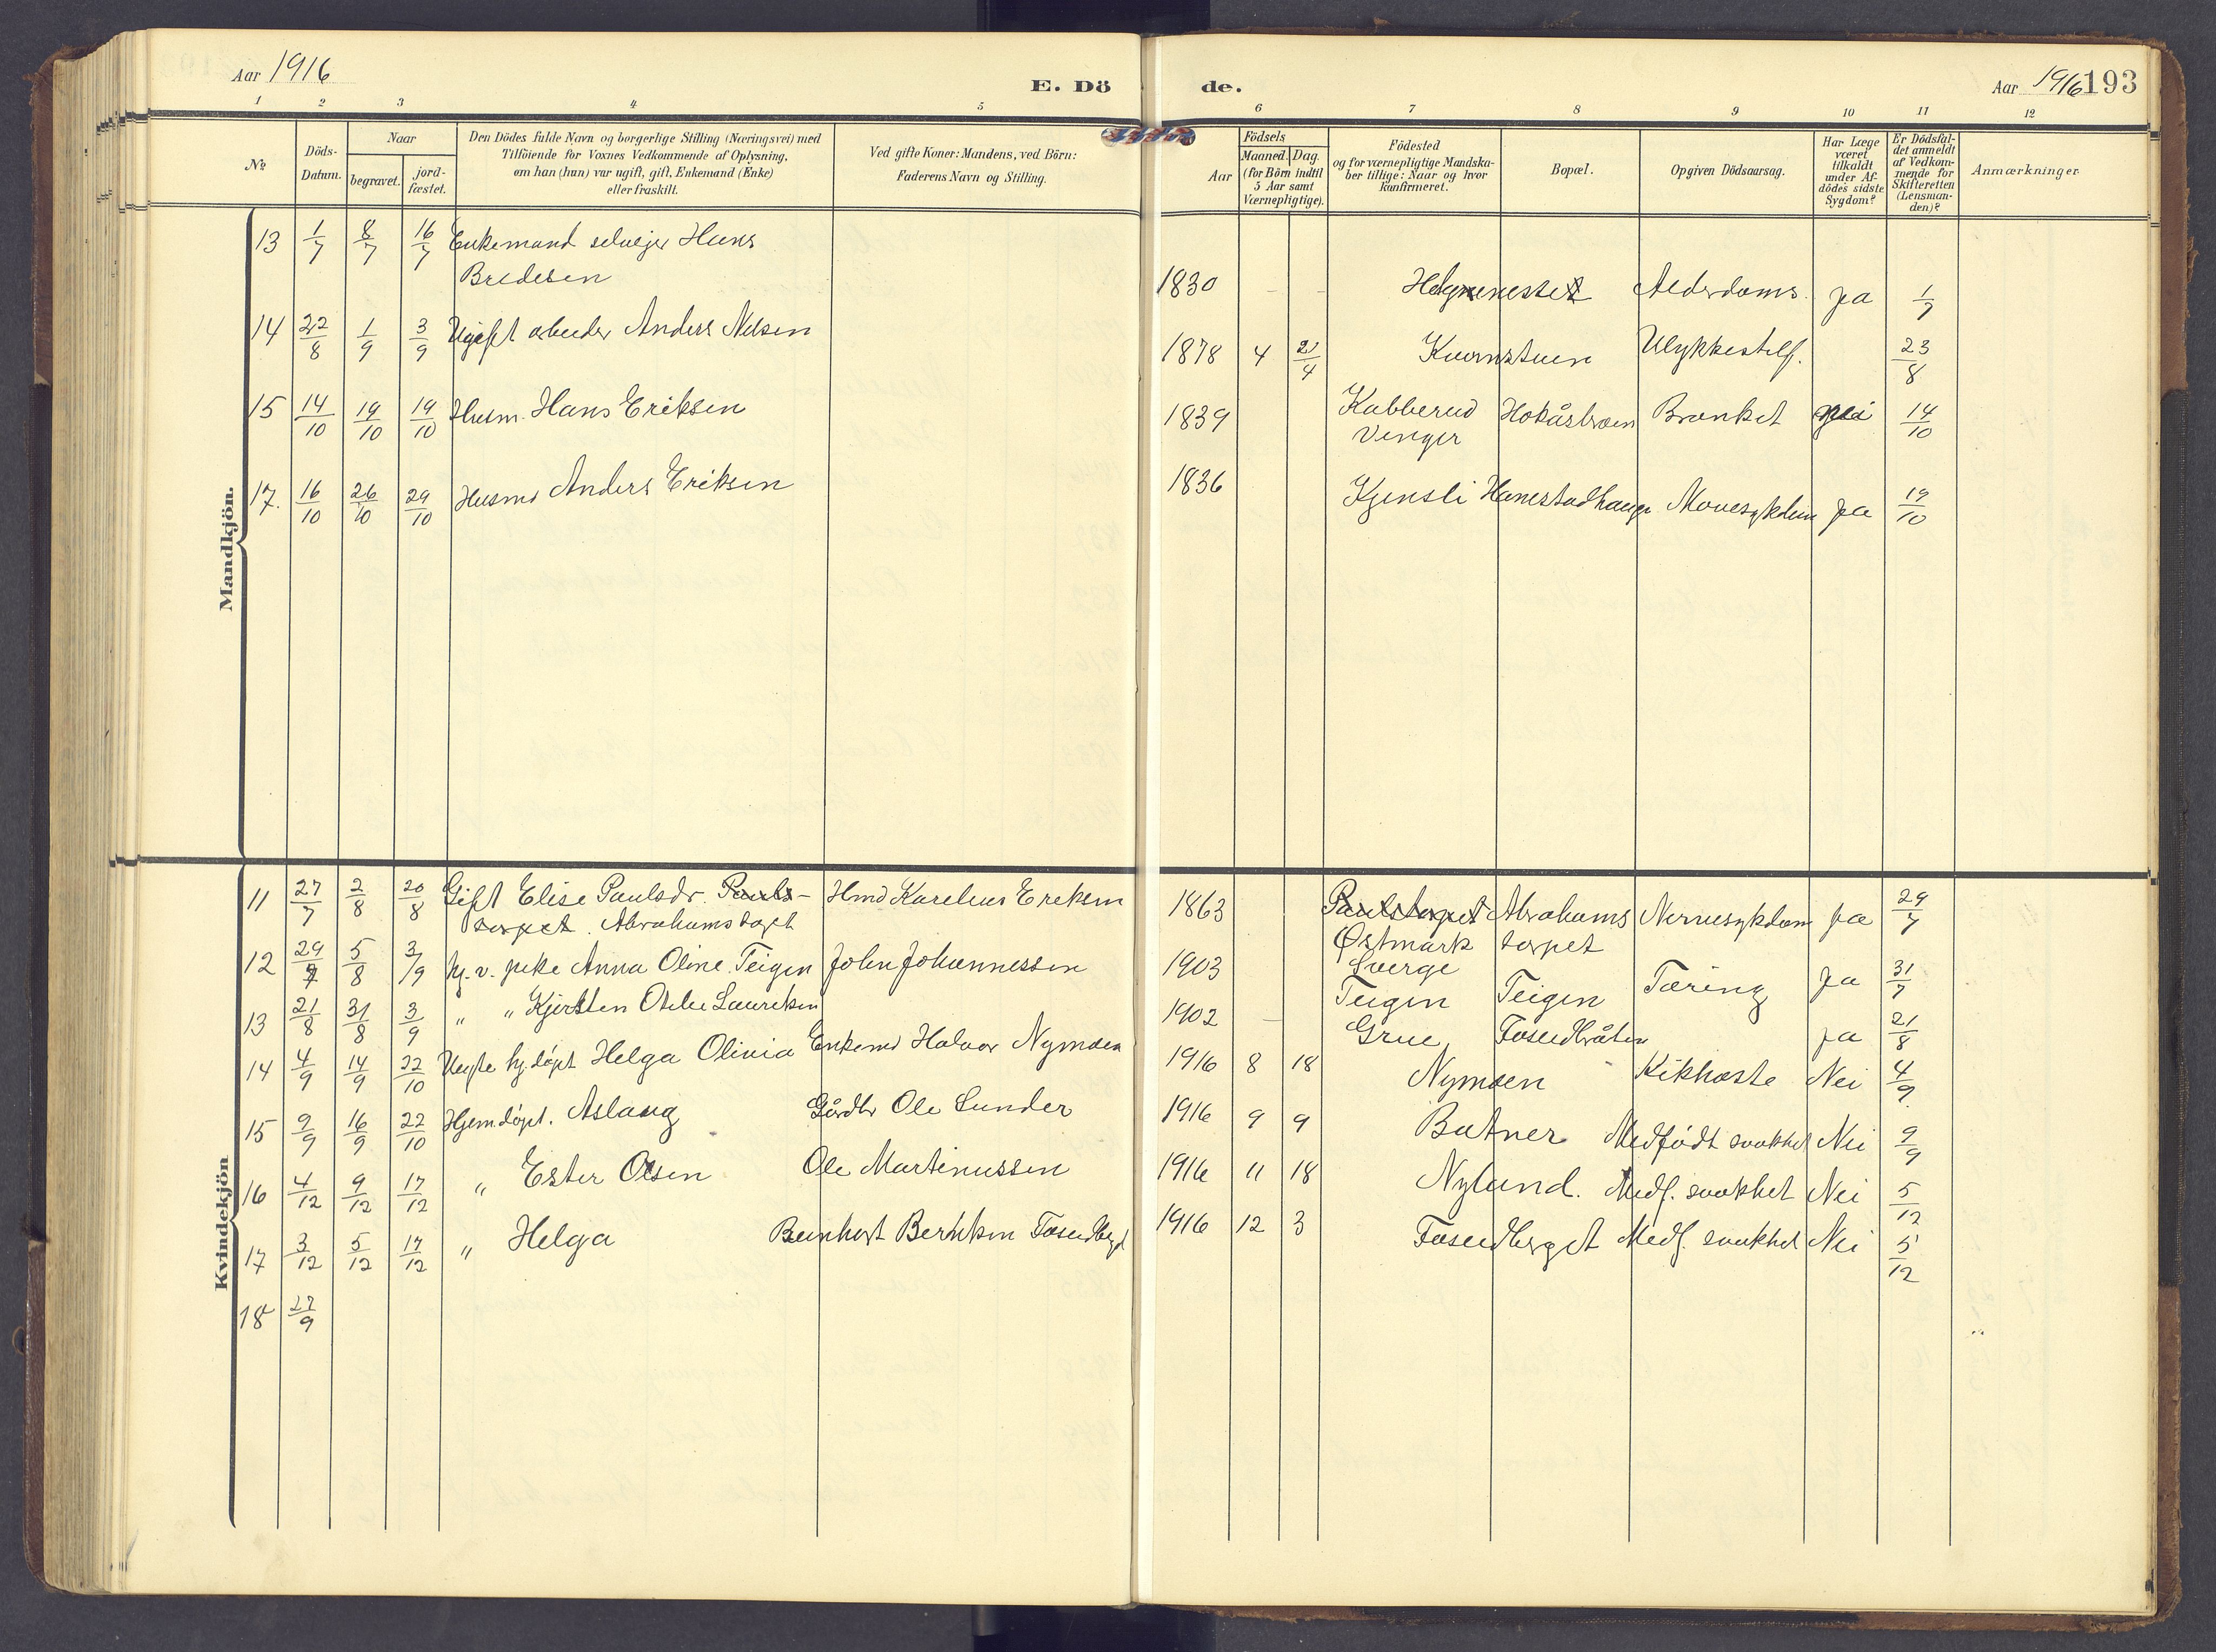 Aar 1916
E. Dö
de.
Aar 1916 193
1 2 3 4 5 6 7 8 9 10 11 12
No
Döds-
Datum.
Naar
begravet.
jord-
fæstet.
Den Dödes fulde Navn og borgerlige Stilling (Næringsvei) med
Tilföiende for Voxnes Vedkommende af Oplysning,
om han (hun) var ugift, gift, Enkemand (Enke)
eller fraskilt.
Ved gifte Koner: Mandens, ved Börn:
Faderens Navn og Stilling.
Födsels
Aar
Maaned. Dag.
(for Börn indtil
5 Aar samt
Værnepligtige).
Födested
og for værnepligtige Mandska-
ber tillige: Naar og hvor
konfirmeret.
Bopæl.
Opgiven Dödsaarsag.
Har Læge
været
tilkaldt
under Af-
dödes sidste
Sygdom?
Er Dödsfal-
det anmeldt
af Vedkom-
mende for
Skifteretten
(Lensman-
den)?
Anmærkninger
Mandkjön.
13 1/7 8/7 16/7 Enkemand selvejer Hans
Bredesen
1830 - - Ja 1/7
14 22/8 1/9 3/9 Ugift arbeider Anders Nilsen
1878 4 21/4 Kvernstuen Ulykkestilf. 23/8
15 14/10 19/10 19/10 Husm. Hans Eriksen 1839 Kabberud Hokåsbroen Bronkit nei 14/10
Vinger
17. 16/10 26/10 29/10 Husmd Anders Eriksen 1836 Kjensli Hanestadhaugen Mavesykdom Ja 19/10
Kvindekjön
11 27/7 2/8 20/8 Gift Elise Paulsdr. Pauls- Hmd Karelius Ereksen 1863 Paulstorpet Abrahams Nervesykdom Ja 29/7
torpet. Abrahamstorpet Østmark torpet
12 29/7 5/8 3/9 hj. v. pike Anna Oline Teigen John Johannessen 1903 Sverge
Teigen Teigen Tæring Ja 31/7
13 21/8 31/8 3/9 " " Kjersten Otelie Lauritsen 1902 - Grue Fosendbråten Ja 21/8
14 4/9 14/9 22/10 Uegte hj. døpt Helga Olivia Enkemd Halvor Nymoen 1916 8 18 Nymoen Kikhoste Nei 4/9
15 9/9 16/9 22/10 Hjemdøpt. Aslaug Gårdbr Ole Sunder 1916 9 9 Butner Medfødt svakhet Nei 9/9
16 4/12 9/12 17/12 " Ester Olsen Ole Martinussen 1916 11 18 Nylund. Medf. svakhet Nei 5/12
17 3/12 5/12 17/12 " Helga Bernhart Berntsen Fosendberget 1916 12 3 Fosendberget Medf. svakhet Nei 5/12
18 27/9